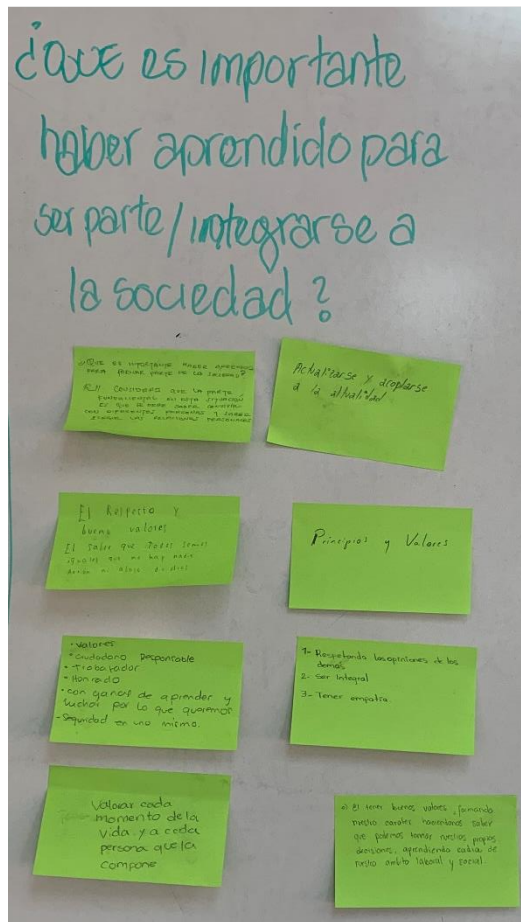 ¿QUE es importante
haber aprendido para
ser parte/integrarse a
la sociedad?
¿QUE ES IMPORTANTE HABER APRENDIDO
PARA FORMAR PARTE DE LA SOCIEDAD?
R// CONSIDERO QUE LA PARTE
FUNDAMENTAL EN ESTA SITUACIÓN
ES QUE SE DEBE SABER CONVIVIR
CON DIFERENTES PERSONAS Y SABER
LAS RELACIONES PERSONALES
Actualizarse y adaptarse
a la actualidad
El Respecto y
buena valores
El saber que todos somos
iguales que no hay nadie
Principios y Valores
• Valores
• Ciudadano Responsable
• Trabajador
• Honrado
• con ganas de aprender y
luchar por lo que queremos
- Seguridad en uno mismo.
1- Respetando las opiniones de los
demás
2- Ser Integral
3- Tener empatía
Valorar cada
momento de la
vida y a cada
persona que la
compone
El tener buenos valores, formando
nuestro carácter, haciéndonos saber
que podemos tomar nuestras propias
decisiones, aprendiendo cada de
nuestro ámbito laboral y social.